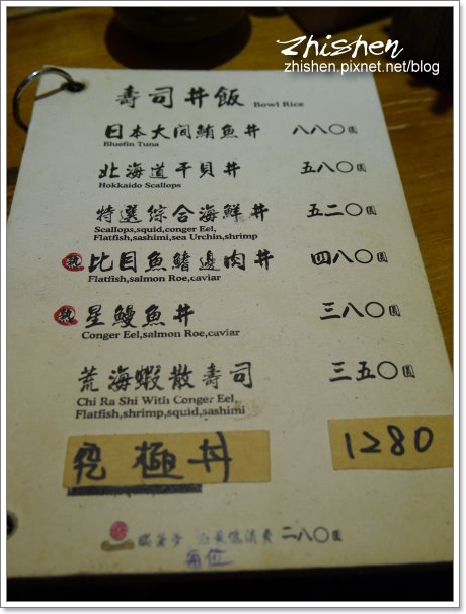 Zhishen
zhishen.pixnet.net/blog
壽司丼飯 Bowl Rice
日本大间鮪魚丼 八八〇圓
Bluefin Tuna
北海道干貝丼 五八〇圓
Hokkaido Scallops
特選綜合海鮮丼 五二〇圓
Scallops,squid,conger Eel,
Flatfish,sashimi,sea Urchin,shrimp
熱 比目魚鰭邊肉丼 四八〇圓
Flatfish,salmon Roe,caviar
熱 星鰻魚丼 三八〇圓
Conger Eel,salmon Roe,caviar
荒海蝦散壽司 三五〇圓
Chi Ra Shi With Conger Eel,
Flatfish,shrimp,squid,sashimi
究極丼 1280
最低消費 二八〇圓
每位